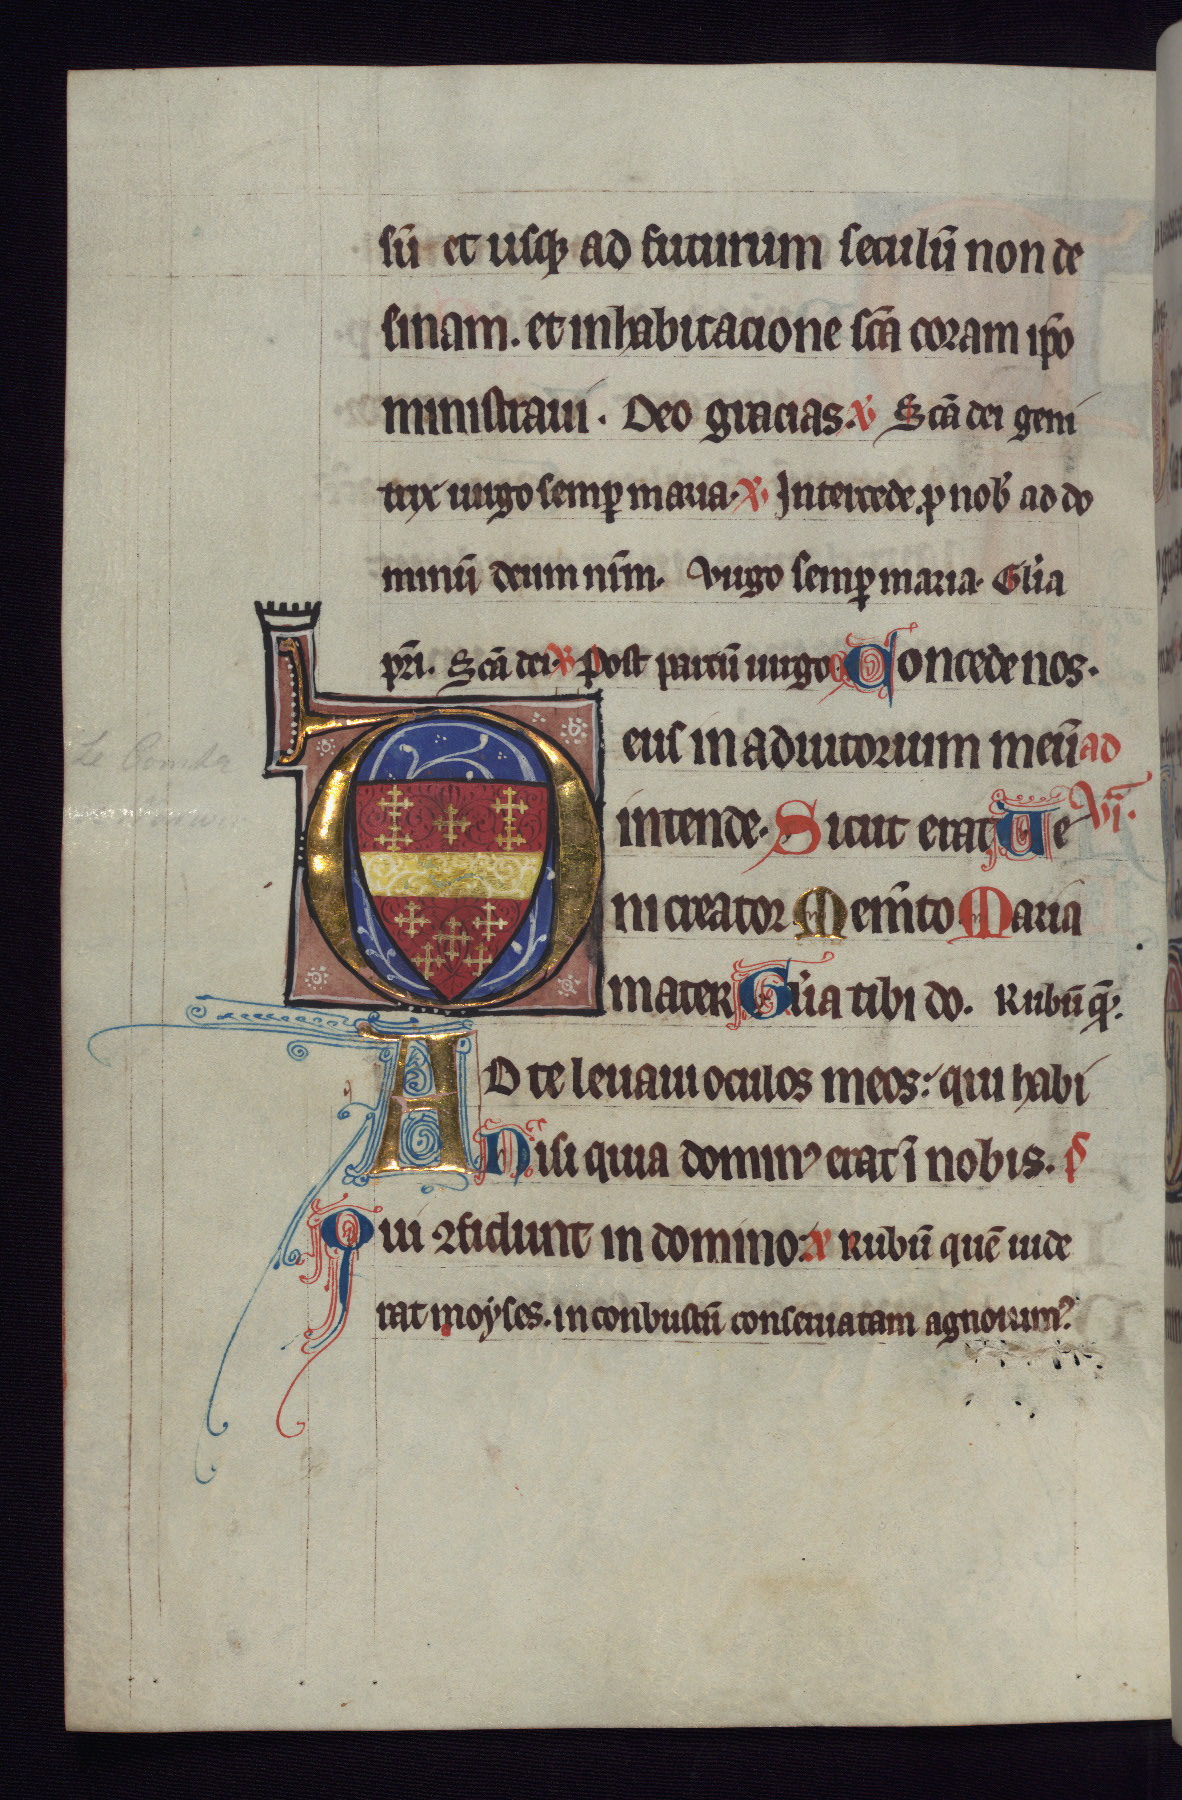 sū et usqꝫ ad futurum seculū non de
sinam. et inhabitacione scā coram ip̄o
ministraui. Deo gracias. ℣ Scā dei geni
trix uirgo semꝑ maria. ℟. Intercede ꝓ nob̄ ad do
minū deum nr̄m. Virgo semꝑ maria. Gl̄ia
pr̄i. Scā dei. ℣ Post partū uirgo Concede nos.
Deus in adiutorium meū ad
intende. Sicut erat Ve vi.
ni creator Mem̄to Maria
mater Gl̄ia tibi do. Rubū q̄.
AD te leuaui oculos meos: qui habi
Nisi quia dominꝰ erat ī nobis. p̄
Qui ꝯfidunt in domino: Rubū quē uide
rat moyses. inconbustū conseruatam agnorum?
Le Comda